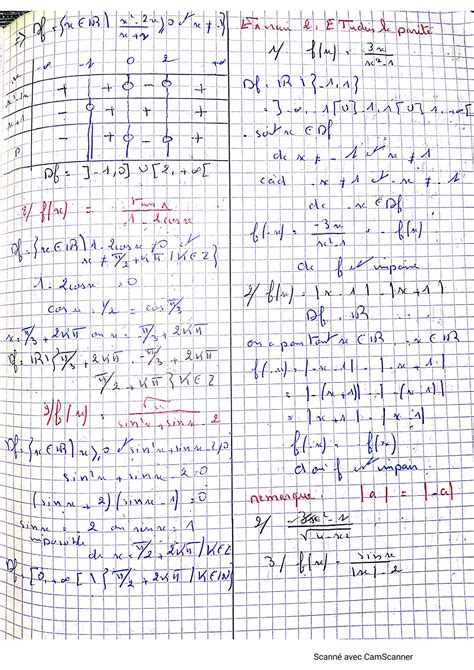 => Df = {x ∈ IR \ (x² - 2x)/(x+1) ≥ 0 et x ≠ -1}
x -∞ -1 0 2 +∞
x²-2x + + - +
x+1 - + + +
P - + - +
Df = ]-1,0] ∪ [2,+∞[
2/ f(x) = tan x / (1 - 2cosx)
Df = {x ∈ IR \ 1 - 2cosx ≠ 0 et
x ≠ π/2 + Kπ / K ∈ Z}
1 - 2cosx = 0
cosx = 1/2 = cos π/3
x = π/3 + 2Kπ ou x = -π/3 + 2Kπ
Df = IR \ {π/3 + 2Kπ, -π/3 + 2Kπ
π/2 + Kπ } K ∈ Z
3/ f(x) = √x / (sin²x + sinx - 2)
Df = {x ∈ IR \ x ≥ 0 et sin²x + sinx - 2 ≠ 0
sin²x + sinx - 2 = 0
(sinx + 2)(sinx - 1) = 0
sinx = -2 ou sinx = 1
impossible
dc x = π/2 + 2Kπ / K ∈ Z
Df = [0, +∞[ \ {π/2 + 2Kπ / K ∈ IN}
2. Etudier la parité
1/ f(x) = 3x / (x² - 1)
Df = IR \ {-1,1}
= ]-∞,-1[ ∪ ]-1,1[ ∪ ]1,+∞[
soit x ∈ Df
dc x ≠ -1 et x ≠ 1
càd -x ≠ 1 et -x ≠ -1
dc -x ∈ Df
f(-x) = -3x / (x² - 1) = -f(x)
dc f est impaire
2/ f(x) = |x - 1| - |x + 1|
Df = IR
on a pour tout x ∈ IR, -x ∈ IR
f(-x) = |-x - 1| - |-x + 1|
= |-(x+1)| - |-(x-1)|
= |x + 1| - |x - 1|
f(-x) = - f(x)
d'où f est impair
remarque : |a| = |-a|
3/ f(x) = sinx / (|x| - 2)
Scanné avec CamScanner